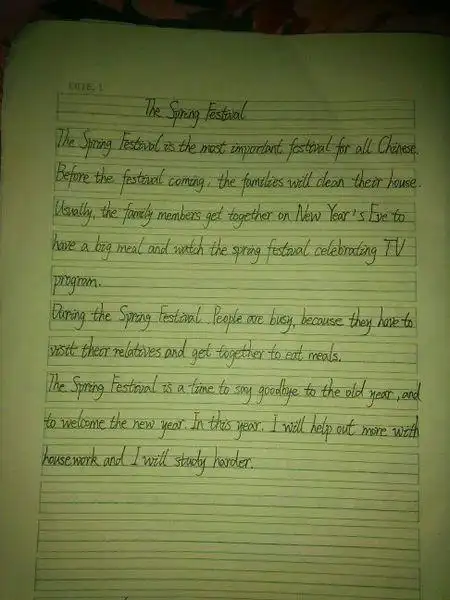 The Spring Festival
The Spring Festival is the most important festival for all Chinese.
Before the festival coming, the families will clean their house.
Usually, the family members get together on New Year's Eve to
have a big meal and watch the spring festival celebrating TV
program.
During the Spring Festival. People are busy, because they have to
visit their relatives and get together to eat meals.
The Spring Festival is a time to say goodbye to the old year, and
to welcome the new year. In this year. I will help out more with
housework and I will study harder.